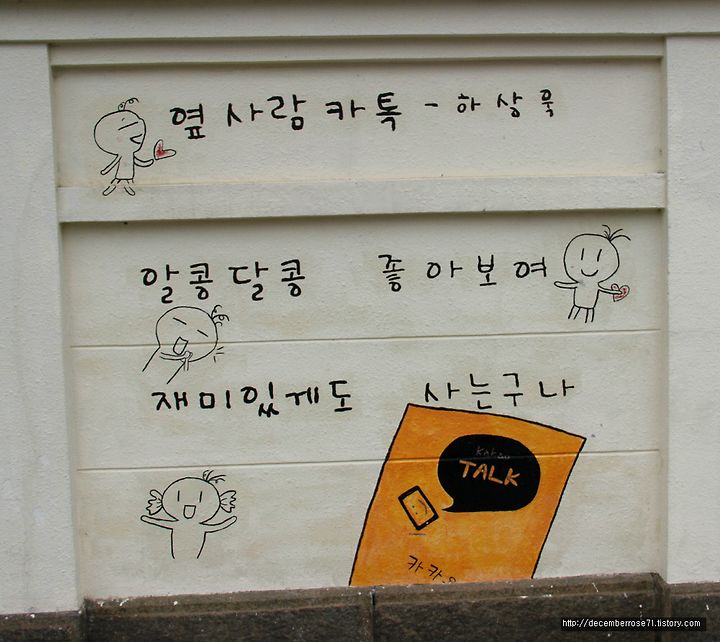 옆사람카톡 - 하상욱
알콩달콩 좋아보여
재미있게도 사는구나
KAKAO
TALK
카카오
http://decemberrose71.tistory.com